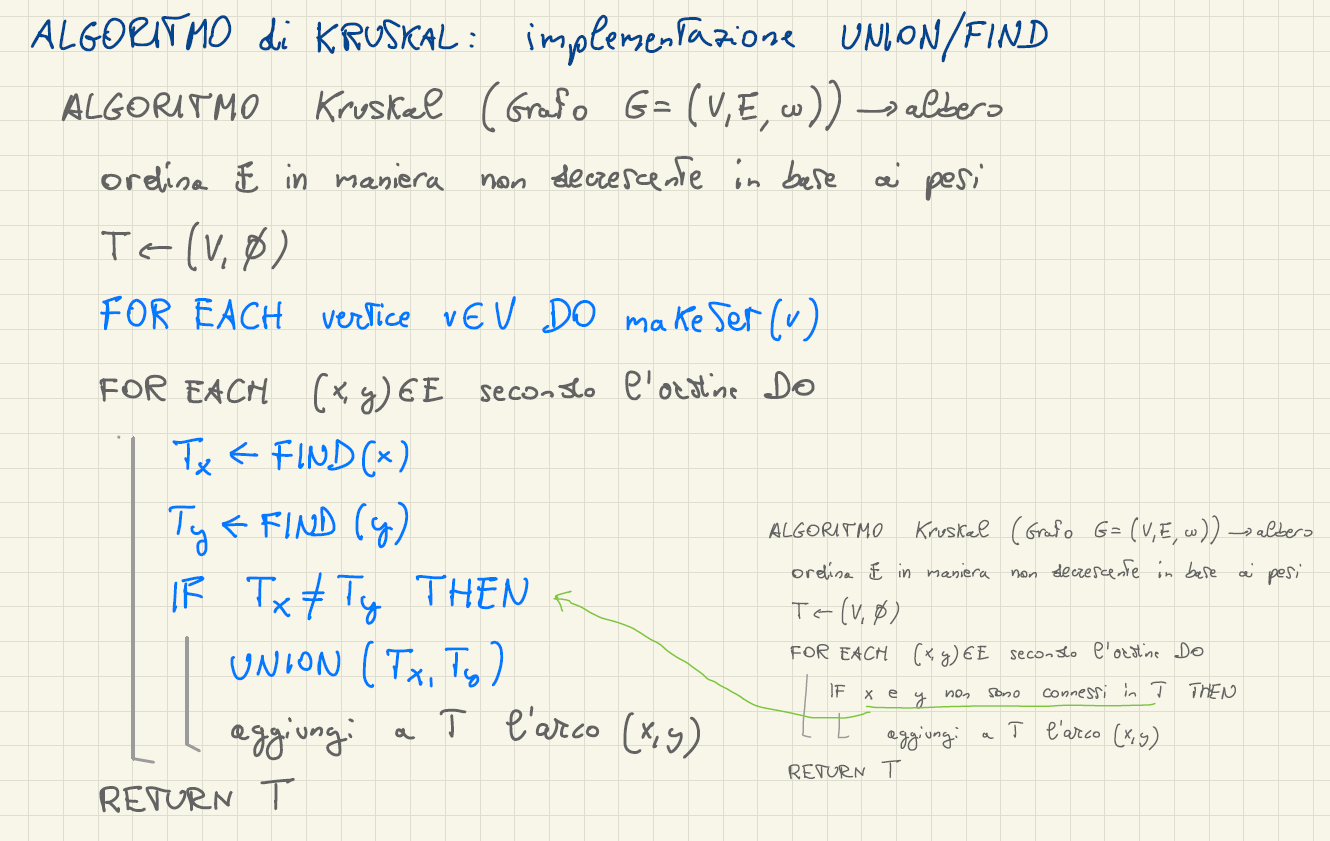 ALGORITMO di KRUSKAL: implementazione UNION/FIND
ALGORITMO Kruskal (Grafo G=(V,E,ω)) → albero
ordina E in maniera non decrescente in base ai pesi
T ← (V, ∅)
FOR EACH vertice v∈V DO makeSet(v)
FOR EACH (x,y)∈E secondo l'ordine DO
Tx ← FIND(x)
Ty ← FIND(y)
IF Tx ≠ Ty THEN
UNION (Tx, Ty)
aggiungi a T l'arco (x,y)
RETURN T
ALGORITMO Kruskal (Grafo G=(V,E,ω)) → albero
ordina E in maniera non decrescente in base ai pesi
T ← (V, ∅)
FOR EACH (x,y)∈E secondo l'ordine DO
IF x e y non sono connessi in T THEN
aggiungi a T l'arco (x,y)
RETURN T